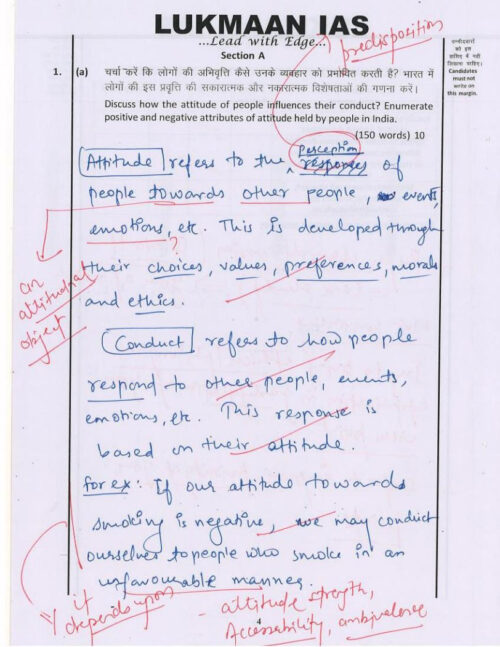 LUKMAAN IAS
...Lead with Edge...
predisposition
Section A
उम्मीदवारों को इस हाशिए में नहीं लिखना चाहिए।
Candidates must not write on this margin.
1. (a) चर्चा करें कि लोगों की अभिवृत्ति कैसे उनके व्यवहार को प्रभावित करती है? भारत में
लोगों की इस प्रवृत्ति की सकारात्मक और नकारात्मक विशेषताओं की गणना करें।
Discuss how the attitude of people influences their conduct? Enumerate
positive and negative attributes of attitude held by people in India.
(150 words) 10
Perception
Attitude refers to the ^ responses of
people towards other people, events,
emotions, etc. This is developed through
?
their choices, values, preferences, morals
and ethics.
an
attitudinal
object
Conduct refers to how people
respond to other people, events,
emotions, etc. This response is
based on their attitude.
for ex: If our attitude towards
smoking is negative, we may conduct
ourselves to people who smoke in an
unfavourable manner.
it
depends upon
- attitude strength,
Accessibility, ambivalence
4